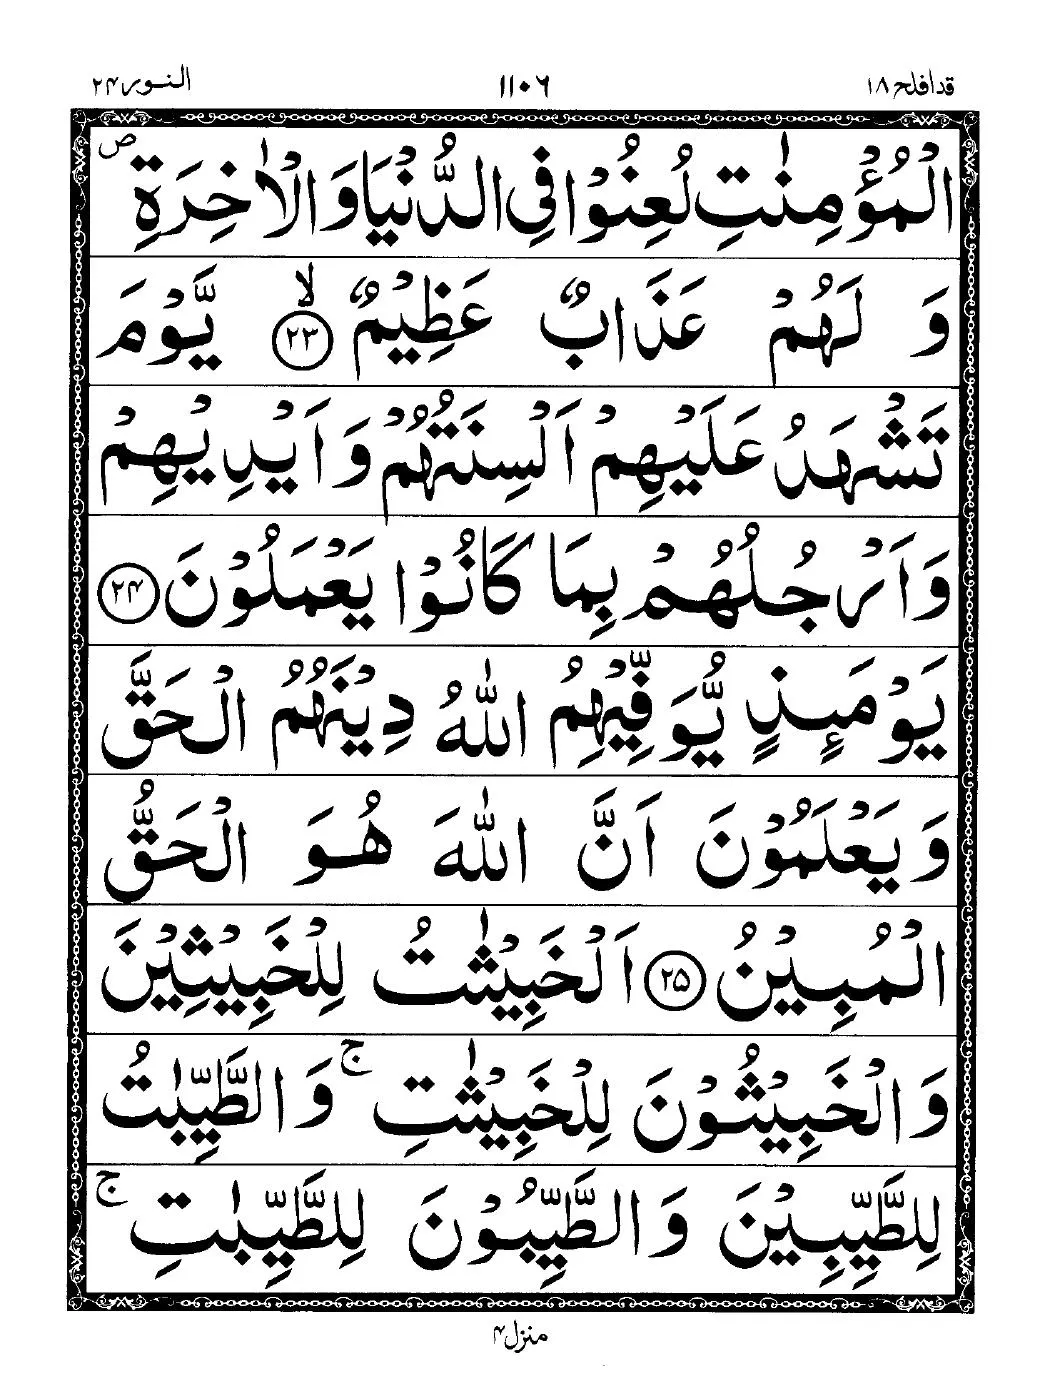 قدافلح ۱۸ ۱۱۰۶ النور ۲۴
الْمُؤْمِنٰتِ لُعِنُوْا فِی الدُّنْیَا وَالْاٰخِرَةِ ۪
وَ لَهُمْ عَذَابٌ عَظِیْمٌ ۙ﴿۲۳﴾ یَّوْمَ
تَشْهَدُ عَلَیْهِمْ اَلْسِنَتُهُمْ وَ اَیْدِیْهِمْ
وَ اَرْجُلُهُمْ بِمَا كَانُوْا یَعْمَلُوْنَ ﴿۲۴﴾
یَوْمَىِٕذٍ یُّوَفِّیْهِمُ اللّٰهُ دِیْنَهُمُ الْحَقَّ
وَ یَعْلَمُوْنَ اَنَّ اللّٰهَ هُوَ الْحَقُّ
الْمُبِیْنُ ﴿۲۵﴾ اَلْخَبِیْثٰتُ لِلْخَبِیْثِیْنَ
وَ الْخَبِیْثُوْنَ لِلْخَبِیْثٰتِ ۚ وَ الطَّیِّبٰتُ
لِلطَّیِّبِیْنَ وَ الطَّیِّبُوْنَ لِلطَّیِّبٰتِ ۚ
منزل ۴